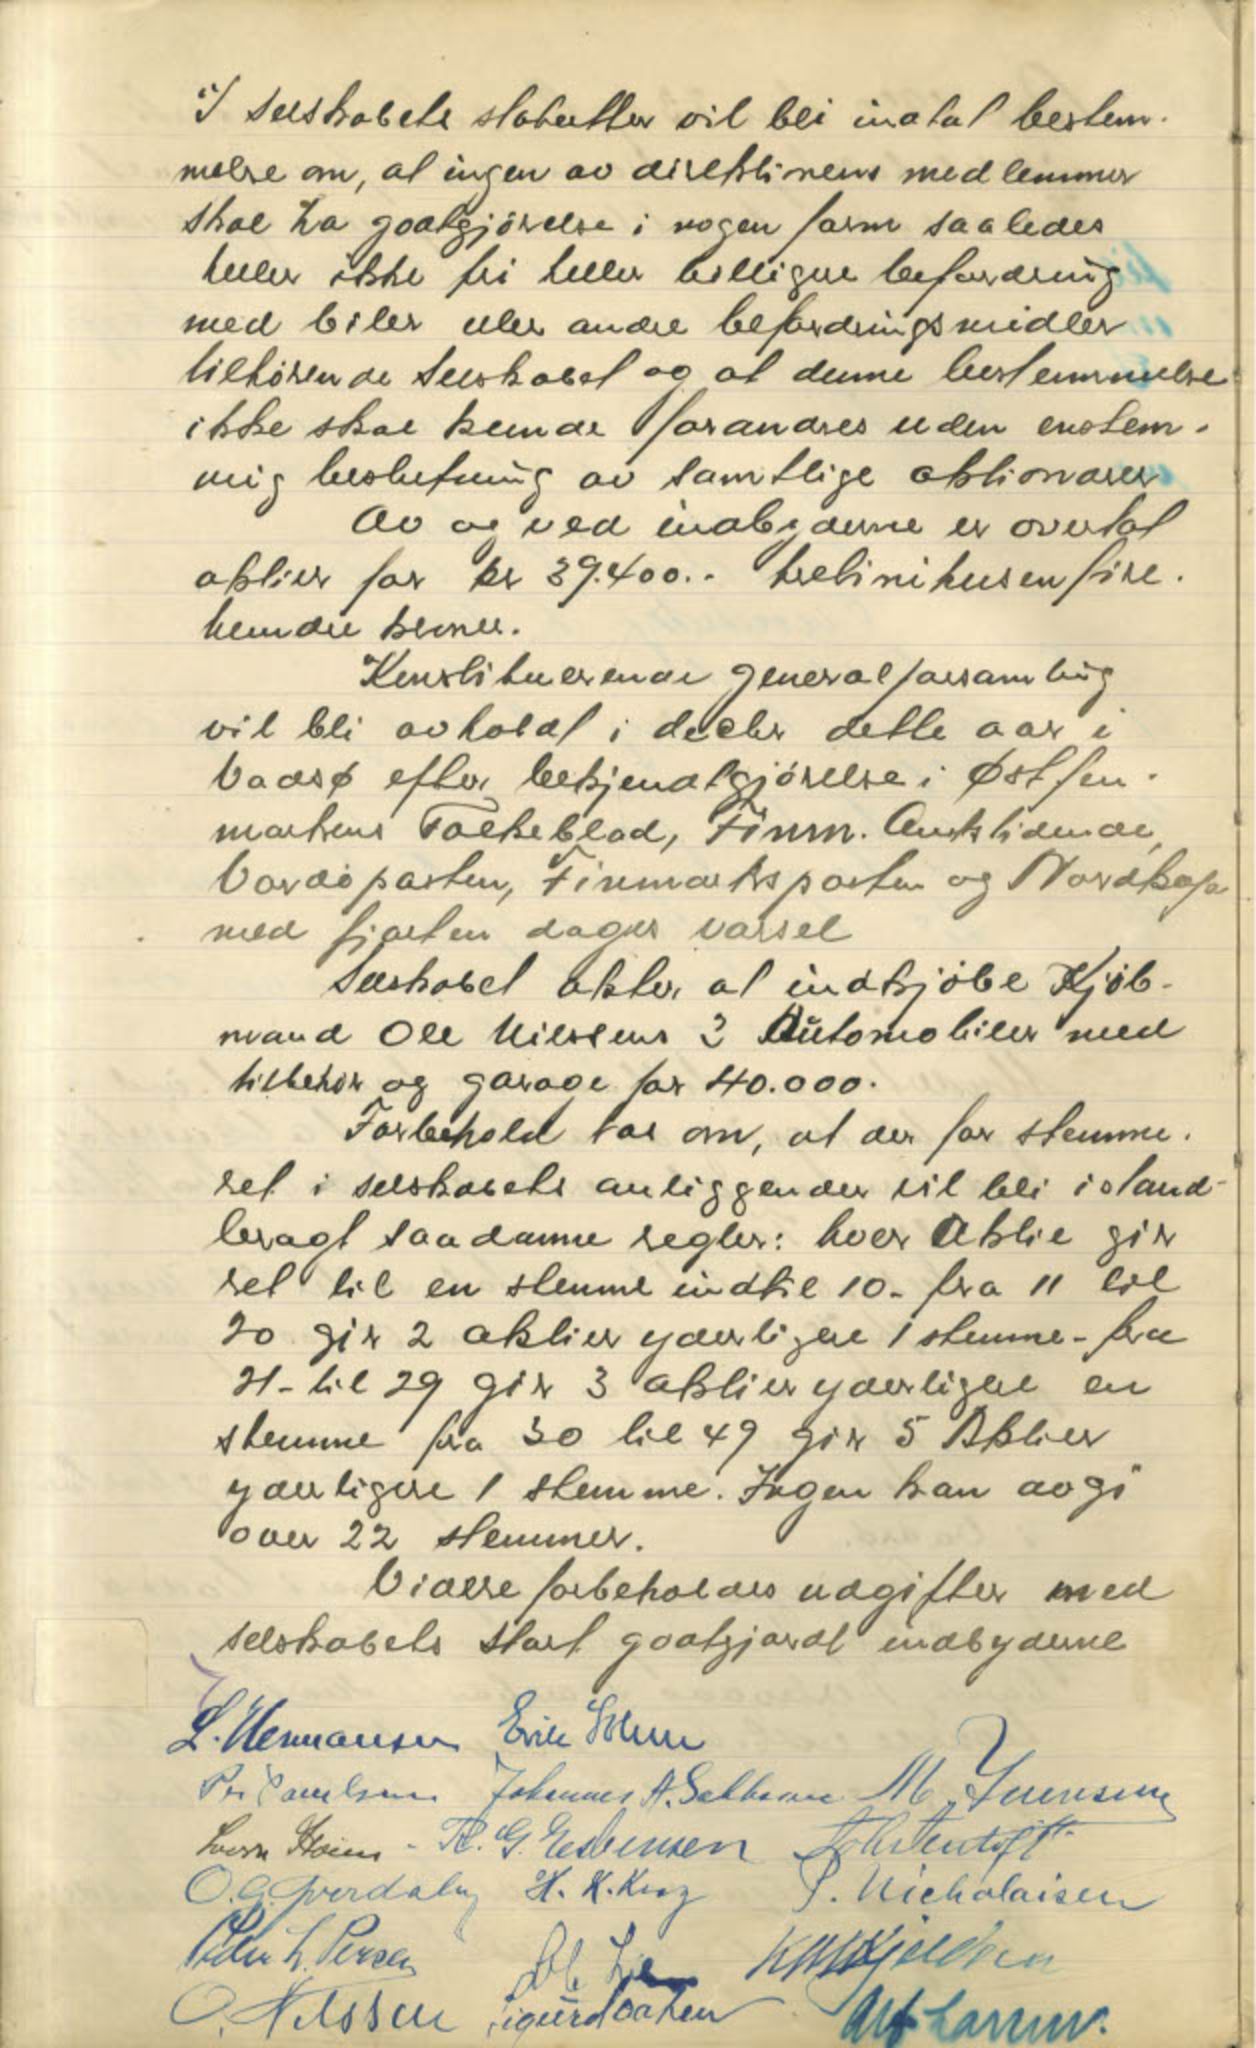 I selskabets statutter vil bli indtat bestem-
melse om, at ingen av direktionens medlemmer
skal ha godtgjörelse i nogen form saaledes
heller ikke fri heller billigere befordring
med biler eller andre befordringsmidler
tilhörende selskabet og at denne bestemmelse
ikke skal kunde forandres uden enstem-
mig beslutning av samtlige aktionærer
Av og ved indbyderne er overtat
aktier for kr 39.400.- trettinitusenfire-
hundre kroner.
Konstituerende generalforsamling
vil bli avholdt i decbr dette aar i
Vadsø efter bekjendtgjörelse i Østfin-
markens Folkeblad, Finm. Amtstidende,
Vardöposten, Finmarksposten og Nordkap
med fjorten dages varsel
Selskabet akter at indkjöbe Kjöb-
mand Ole Nilssens 3 Automobiler med
tilbehör og garage for 40.000.
Forbehold tas om, at der for stemme-
ret i selskabets anliggender vil bli istand-
bragt saadanne regler: hver Aktie gir
ret til en stemme indtil 10- fra 11 til
20 gir 2 aktier yderligere 1 stemme- fra
21- til 29 gir 3 aktier yderligere en
stemme fra 30 til 49 gir 5 Aktier
yderligere 1 stemme. Ingen kan avgi
over 22 stemmer.
Videre forbeholdes udgifter med
selskabets start godtgjordt indbyderne
L. Hermansen Erik
Johannes A.
G. Esbensen
H. K. P. Nicholaisen
Peder L. Persen
O. Nilssen Sigurd
Alf Larsen.